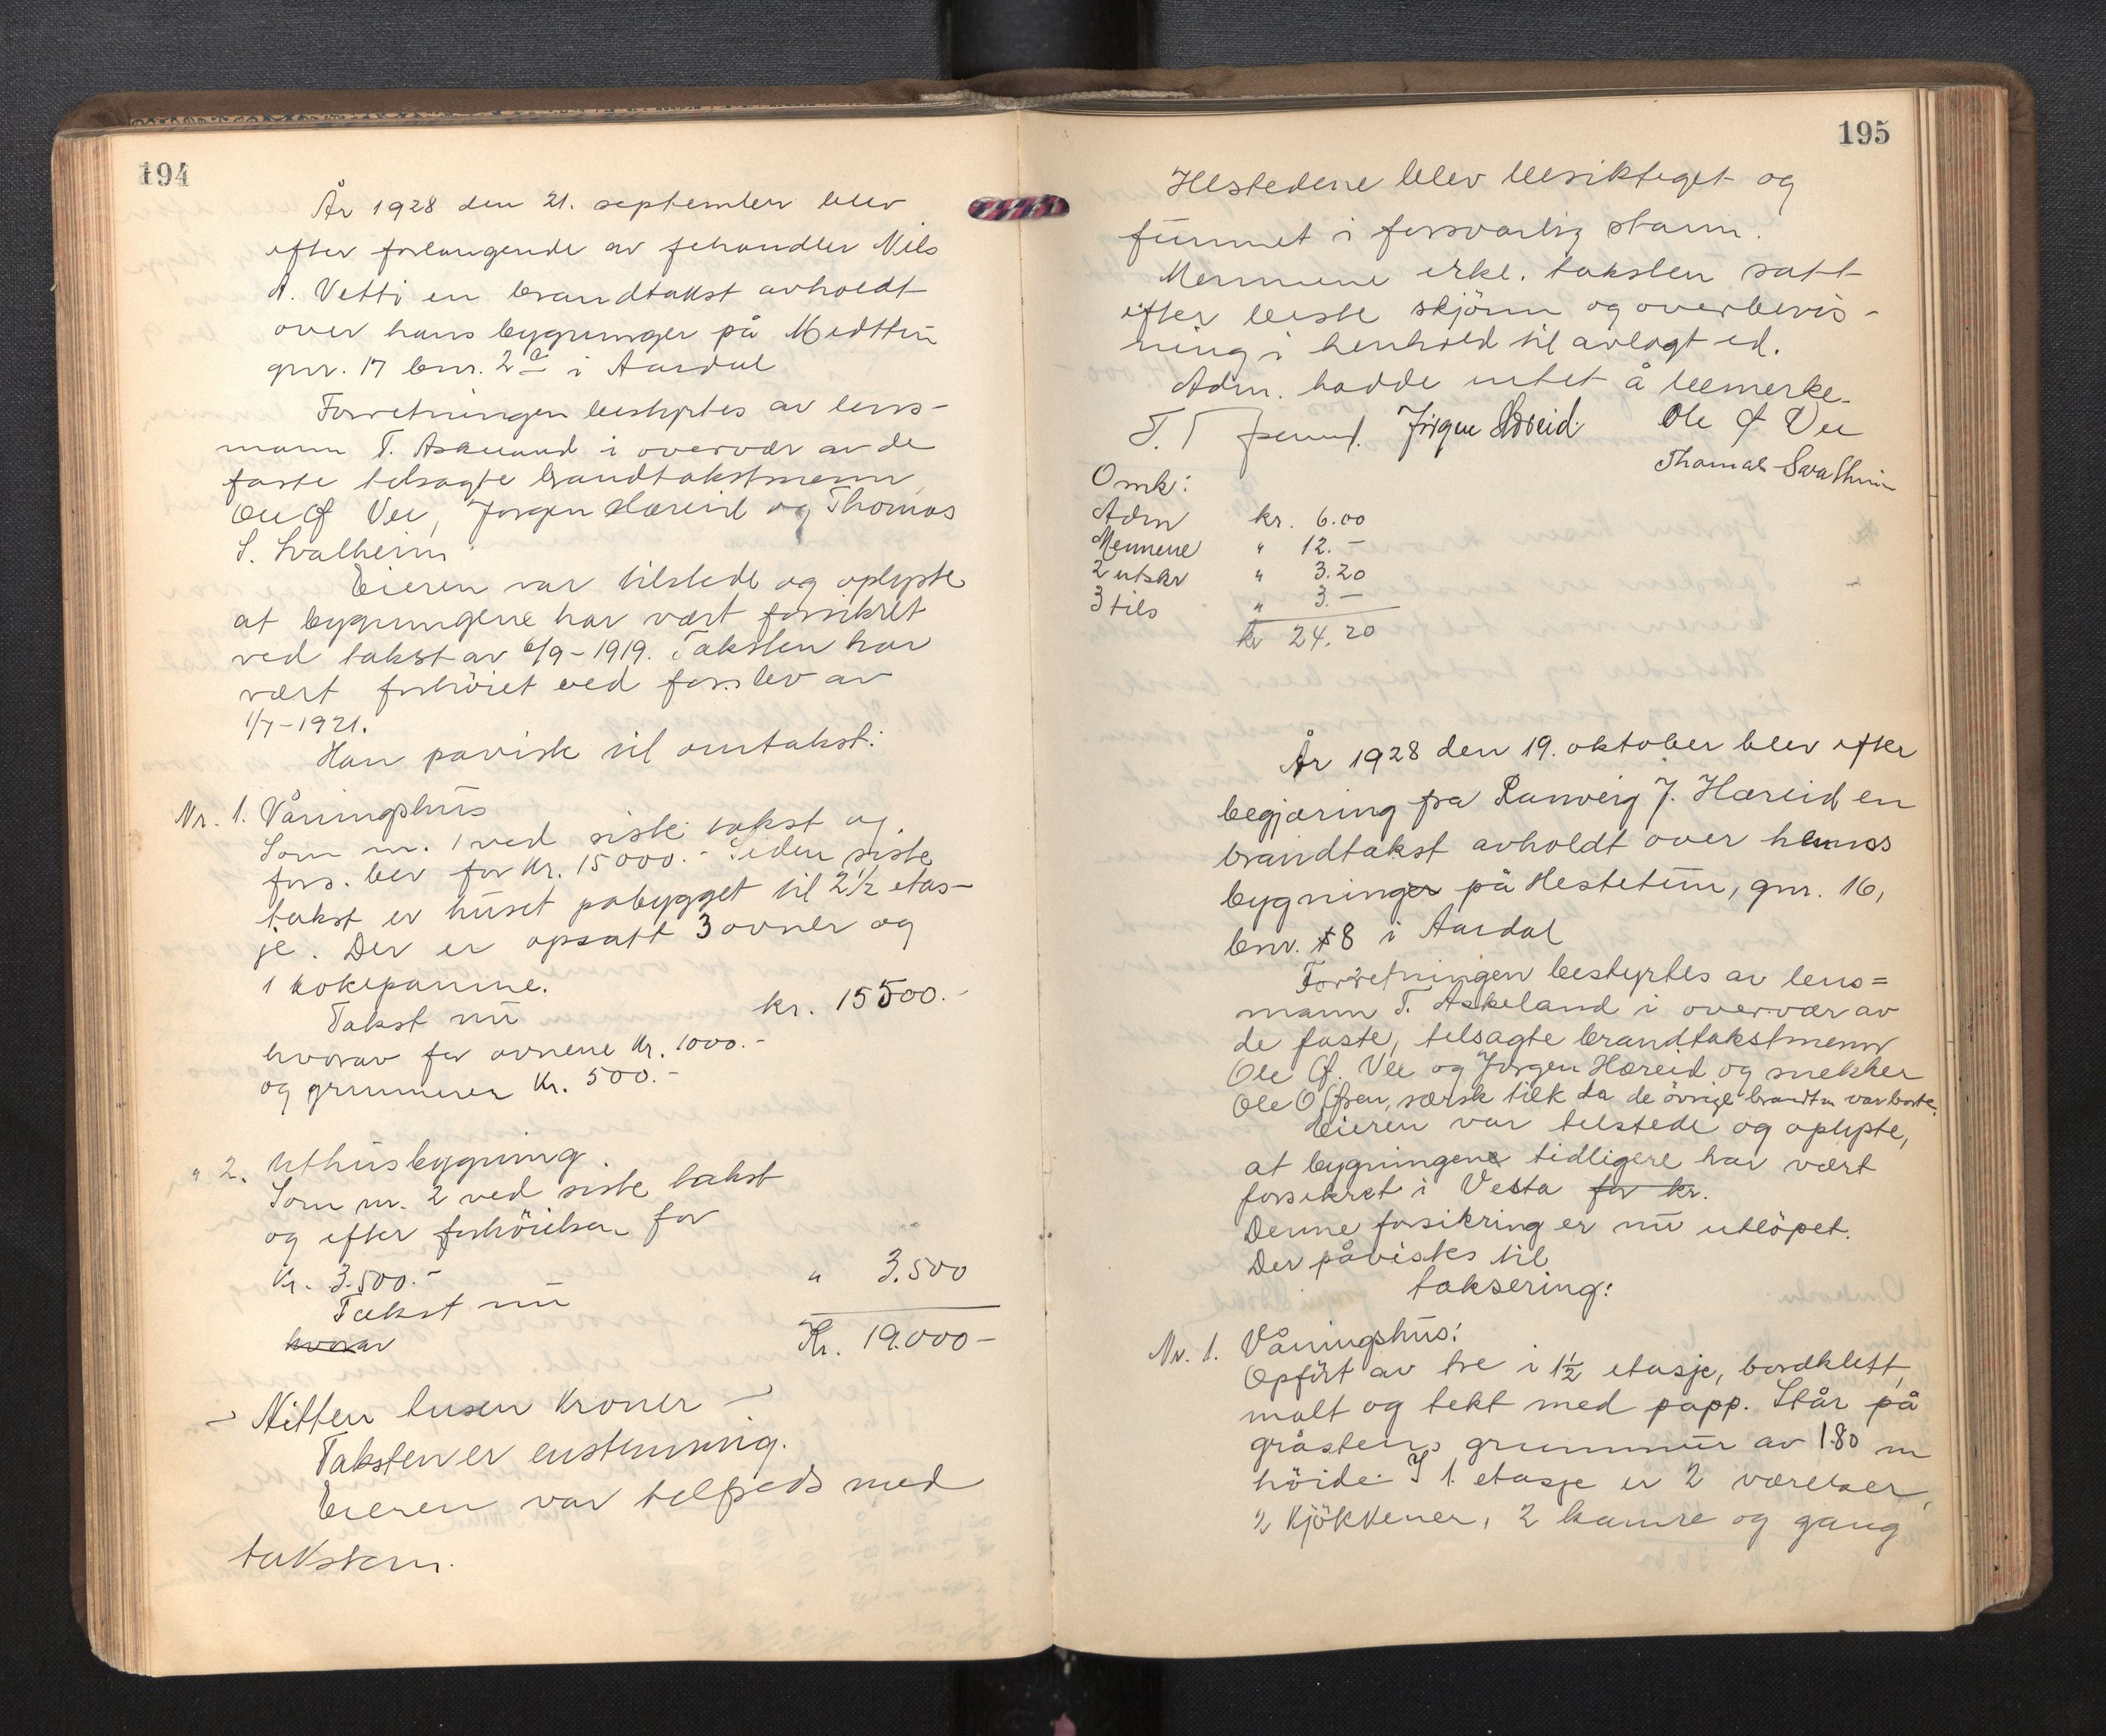 194
År 1928 den 21. september blev
efter forlangende av fehandler Nils
A. Vetti en brandtakst avholdt
over hans bygninger på Midttun
gnr. 17 bnr. 2a i Aardal
Forretningen bestyrtes av lens-
mann T. Askeland i overvær av de
faste tilsagte brandtakstmenn
Ole Vee, Jørgen Hæreid og Thomas
S. Svalheim
Eieren var tilstede og oplyste
at bygningene har vært forsikret
ved takst av 6/9-1919. Taksten har
vært forhöiet ved fors.brev av
1/7-1921.
Han paviste til omtakst:
Nr. 1. Våningshus
Som nr. 1 ved siste takst og
fors. bev for kr. 15000.- Siden siste
takst er huset påbygget til 2 1/2 etas-
je. Der er opsatt 3 ovner og
1 kokepanne.
Takst nu kr. 15500.-
hvorav for ovnene kr. 1000.-
og grunmuren kr. 500.-
" 2. Uthusbygning.
Som nr. 2 ved siste takst
og efter forhöielsen for
kr. 3.500.-
Takst nu " 3.500
hvorav Kr. 19.000-
- Nitten tusen kroner -
Taksten er enstemmig.
Eieren var tilfreds med
taksten.
195
Ildstedene blev besiktiget og
funnet i forsvarlig stann.
Mennene erkl. taksten satt
efter beste skjönn og overbevis-
ning i henhold til avlagt ed.
Adm. hadde intet å bemerke.
Jörgen Hæreid. Ole Vee
Thomas Svalheim
Omk:
Adm kr. 6.00
Mennene " 12.-
2 utskr " 3.20
3 tils " 3.-
kr 24.20
År 1928 den 19. oktober blev efter
begjæring fra Ranveig J. Hæreid en
brandtakst avholdt over hennes
bygninger på Hestetun, gnr. 16,
bnr. 8 i Aardal
Forretningen bestyrtes av lens=
mann T. Askeland i overvær av
de faste, tilsagte brandtakstmenn
Ole Vee og Jørgen Hæreid og snekker
Ole Ofsen, særsk tilk da de övrige brandtm var borte.
Eieren var tilstede og oplyste,
at bygningene tidligere har vært
forsikret i Vesta for kr.
Denne forsikring er nu utlöpet.
Der påvistes til
taksering:
Nr. 1. Våningshus:
Opfört av tre i 1 1/2 etasje, bordklett,
malt og tekt med papp. Står på
gråstens grunnmur av 1.80 m
höide. I 1. etasje er 2 værelser,
2 kjökkener, 2 kamre og gang